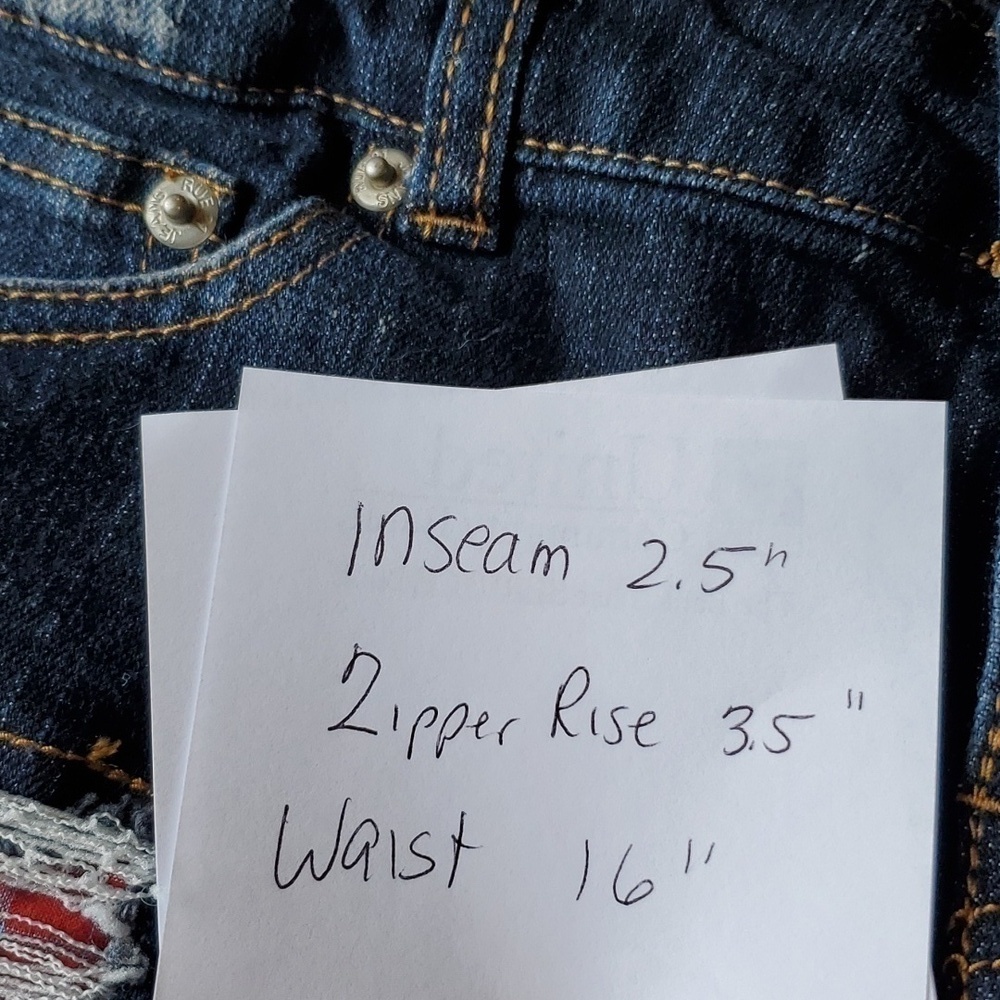 RUE
JEANS
Inseam 2.5"
Zipper Rise 3.5"
Waist 16"